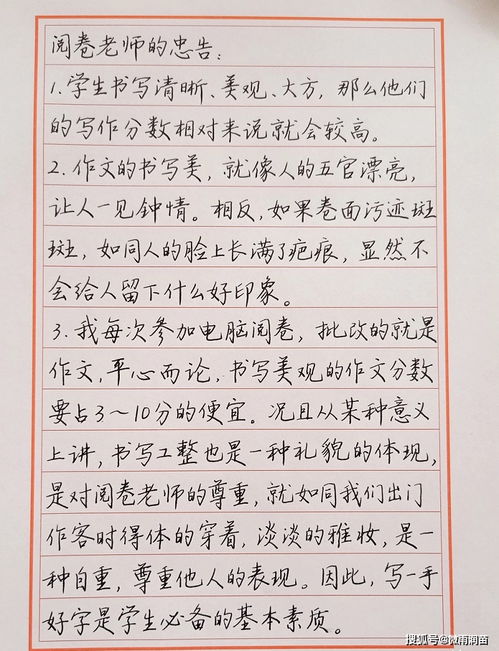 阅卷老师的忠告:
1.学生书写清晰、美观、大方,那么他们
的写作分数相对来说就会较高。
2.作文的书写美,就像人的五官漂亮,
让人一见钟情。相反,如果卷面污迹斑
斑,如同人的脸上长满了疤痕,显然不
会给人留下什么好印象。
3.我每次参加电脑阅卷,批改的就是
作文,平心而论,书写美观的作文分数
要占3～10分的便宜。况且从某种意义
上讲,书写工整也是一种礼貌的体现,
是对阅卷老师的尊重,就如同我们出门
作客时得体的穿着,淡淡的雅妆,是一
种自重,尊重他人的表现。因此,写一手
好字是学生必备的基本素质。
搜狐号@微雨润苗